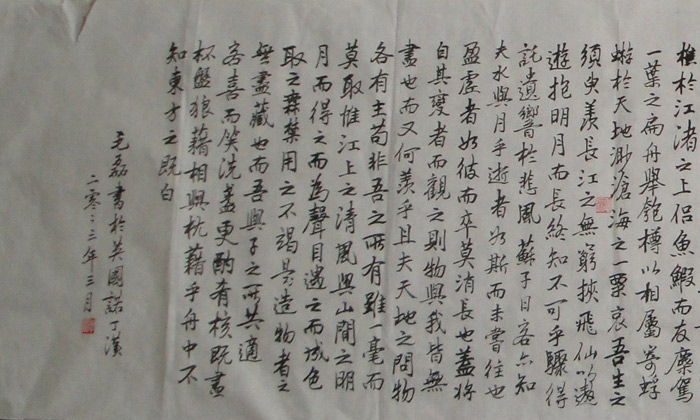 樵於江渚之上侶魚鰕而友麋駕
一葉之扁舟舉匏樽以相屬寄蜉
蝣於天地渺滄海之一粟哀吾生之
須臾羨長江之無窮挾飛仙以遨
遊抱明月而長終知不可乎驟得
託遺響於悲風蘇子曰客亦知
夫水與月乎逝者如斯而未嘗往也
盈虛者如彼而卒莫消長也蓋將
自其變者而觀之則物與我皆無
盡也而又何羨乎且夫天地之間物
各有主苟非吾之所有雖一毫而
莫取惟江上之清風與山間之明
月而得之而為聲目遇之而成色
取之無禁用之不竭是造物者之
無盡藏也而吾與子之所共適
客喜而笑洗盞更酌肴核既盡
杯盤狼藉相與枕藉乎舟中不
知東方之既白
磊書於英國諾丁漢
二零三年三月